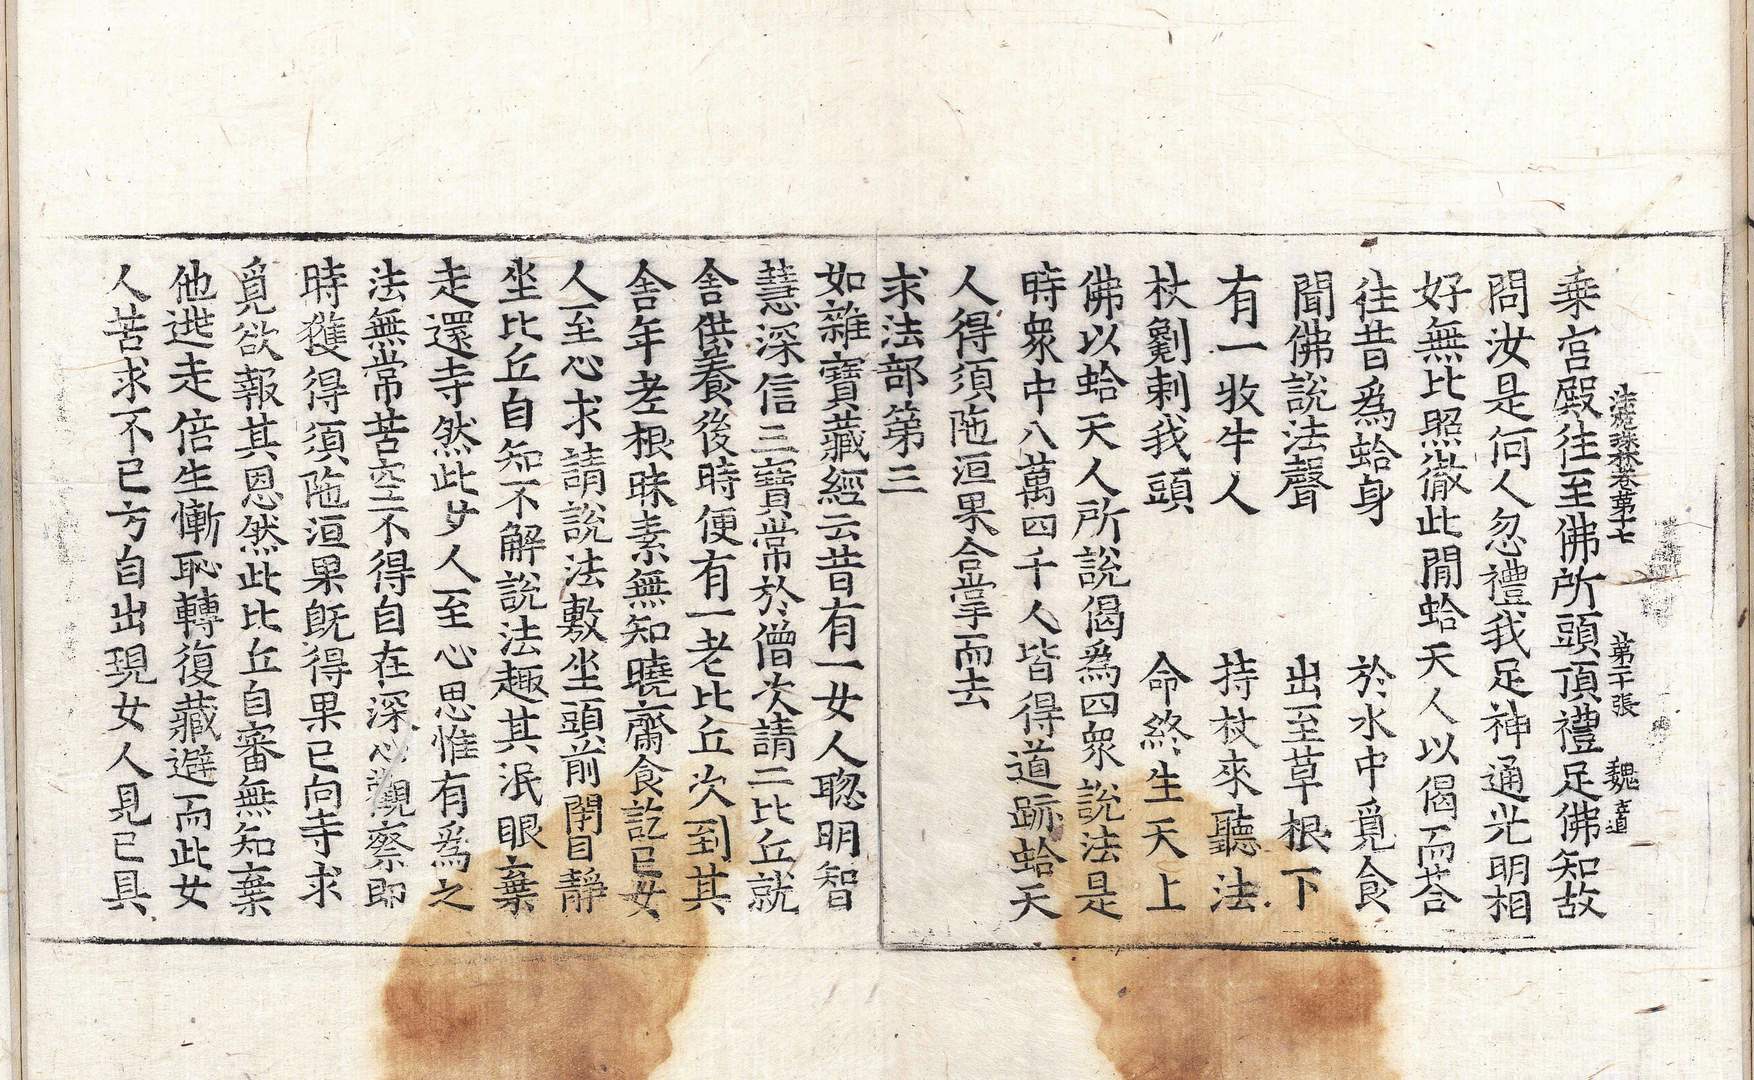 法苑珠林卷第十七　第二十張　魏
乗宫殿往至佛所頭頂禮足佛知故
問汝是何人忽禮我足神通光明相
好無比照徹此閒蛤天人以偈而荅
往昔爲蛤身　於水中覓食
聞佛說法聲　出至草根下
有一牧牛人　持杖來聽法
杖劖刺我頭　命終生天上
佛以蛤天人所說偈爲四衆說法是
時衆中八萬四千人皆得道跡蛤天
人得須陁洹果合掌而去
求法部第三
如雜寶藏經云昔有一女人聦明智
慧深信三寶常於僧次請二比丘就
舍供養後時便有一老比丘次到其
舍年老根昧素無知曉齋食訖已女
人至心求請說法敷坐頭前閇目靜
坐比丘自知不解說法趣其泯眼棄
走還寺然此女人至心思惟有爲之
法無常苦空不得自在深心觀察即
時獲得須陁洹果旣得果已向寺求
覓欲報其恩然此比丘自審無知棄
他逃走倍生慚恥轉復藏避而此女
人苦求不已方自出現女人見已具